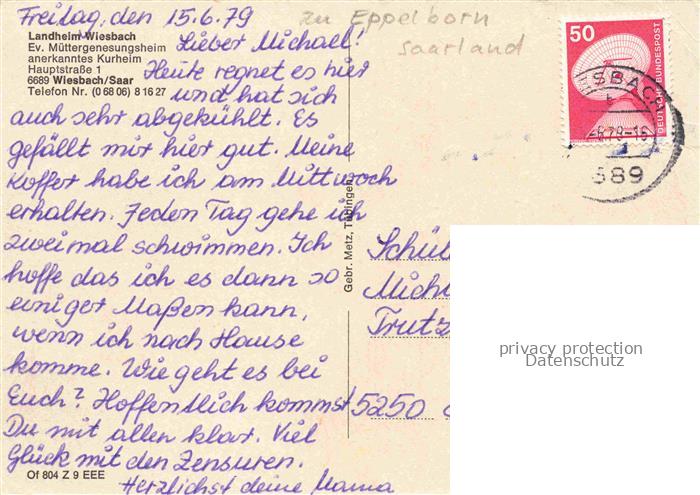 Freitag, den 15.6.79
zu Eppelborn
Saarland
Landheim Wiesbach
Ev. Müttergenesungsheim
anerkanntes Kurheim
Hauptstraße 1
6689 Wiesbach/Saar
Telefon Nr. (0 68 06) 8 16 27
Lieber Michael!
Heute regnet es hier
und hat sich
auch sehr abgekühlt. Es
gefällt mir hier gut. Meine
Koffer habe ich am Mittwoch
erhalten. Jeden Tag gehe ich
zweimal schwimmen. Ich
hoffe das ich es dann so
einiger Maßen kann,
wenn ich nach Hause
komme. Wie geht es bei
Euch? Hoffentlich kommst
Du mit allen klar. Viel
Glück mit den Zensuren.
Herzlichst deine Mama
Of 804 Z 9 EEE
Gebr. Metz, Tübingen
50
DEUTSCHE BUNDESPOST
SBACH
79-16
689
Schül
Mich
Trutz
5250
privacy protection
Datenschutz